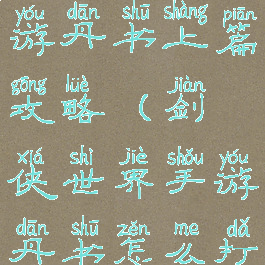 yóu dān shū shàng piān
游丹书上篇
gōng lüè jiàn
攻略(剑
xiá shì jiè shǒu yóu
侠世界手游
dān shū zěn me dǎ
丹书怎么打